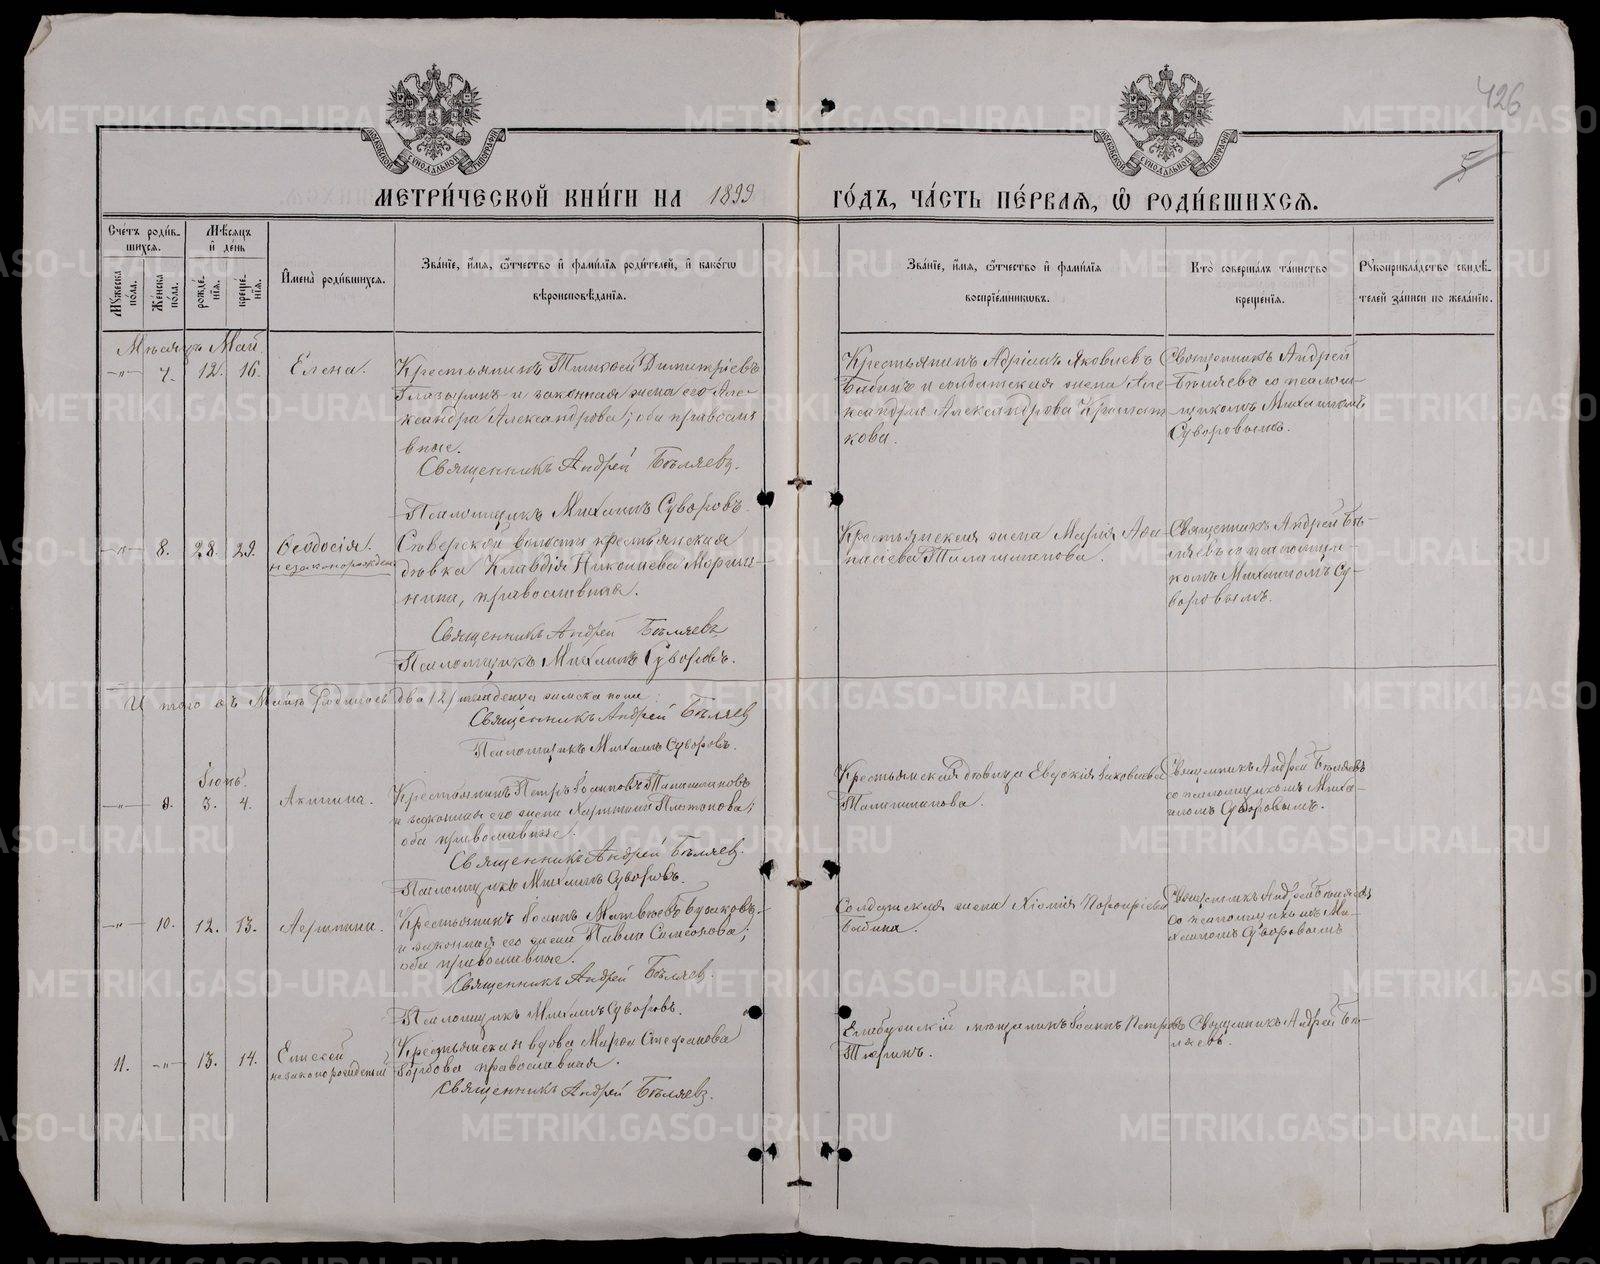 426
5
МОСКОВСКОЙ СѴНОДАЛЬНОЙ ТИПОГРАФІИ
МОСКОВСКОЙ СѴНОДАЛЬНОЙ ТИПОГРАФІИ
МЕТРИ́ЧЕСКОЙ КНИ́ГИ НА 1899 ГО́ДЪ, ЧА́СТЬ ПЕ́РВАЯ, Ѽ РОДИ́ВШИХСЯ.
Сче́тъ роди́в-
шихся.
Мѣ́сяцъ
и де́нь
Му́жеска по́ла.
Же́нска по́ла.
рожде́-
нїя.
креще́-
нїя.
Имена̀ роди́вшихся.
Зва́нїе, и́мя, ѻ́тчество и фами́лїя роди́телей, и како́гѡ
вѣроисповѣ́данїя.
Зва́нїе, и́мя, ѻ́тчество и фами́лїя
воспрїе́мниковъ.
Кто̀ соверша́лъ та́инство
креще́нїя.
Рꙋкоприкла́дство свидѣ́-
телей за́писи по жела́нїю.
Мѣсяцъ Май.
-„- 7. 12. 16. Елена.
Крестьянинъ Тимофей Димитріевъ
Глазыринъ и законная жена его Але-
ксандра Александрова; оба правосла
вные.
Священникъ Андрей Бѣляевъ.
Псаломщикъ Михаилъ Суворовъ.
Крестьянинъ Адріанъ Яковлевъ
Бабинъ и солдатская жена Але
ксандра Александрова
кова.
Священникъ Андрей
Бѣляевъ со псалом-
щикомъ Михаиломъ
Суворовымъ.
-„- 8. 28. 29. Ѳеодосія.
незаконорожден
Сиверской волости крестьянская
дѣвка Клавдія Николаева
нина, православная.
Священникъ Андрей Бѣляевъ
Псаломщикъ Михаилъ Суворовъ.
Крестьянская жена Марія Аѳа
насіева Талашманова.
Священникъ Андрей Бѣ-
ляевъ со псаломщи-
комъ Михаиломъ Су-
воровымъ.
Итого въ Маѣ родилось два /2/ младенца женска пола:
Священникъ Андрей Бѣляев
Псаломщикъ Михаилъ Суворовъ.
Іюнь.
-„- 9. 3. 4. Акилина.
Крестьянинъ Петръ Іоанновъ Талашмановъ
и законная его жена Харитина Платонова;
оба православные.
Священникъ Андрей Бѣляевъ.
Псаломщикъ Михаилъ Суворовъ.
Крестьянская дѣвица Евдокія Іаковлева
Талашманова.
Священникъ Андрей Бѣляевъ
со псаломщикомъ Миха-
иломъ Суворовымъ.
-„- 10. 12. 13.
Крестьянинъ Іоаннъ Матвѣевъ
и законная его жена Павла Симеонова;
оба православные.
Священникъ Андрей Бѣляев.
Псаломщикъ Михаилъ Суворовъ.
Солдатская жена Хіонія Порфиріева
Бабина.
Священникъ Андрей Бѣляевъ
со псаломщикомъ Ми-
хаиломъ Суворовымъ
11. -„- 13. 14. Елисей
незаконорожденный
Крестьянская вдова Марѳа Стефанова
православная.
Священникъ Андрей Бѣляевъ.
Елабужскій мѣщанинъ Іоаннъ Петровъ
Тюринъ.
Священникъ Андрей Бѣ-
ляевъ.
METRIKI.GASO-URAL.RU